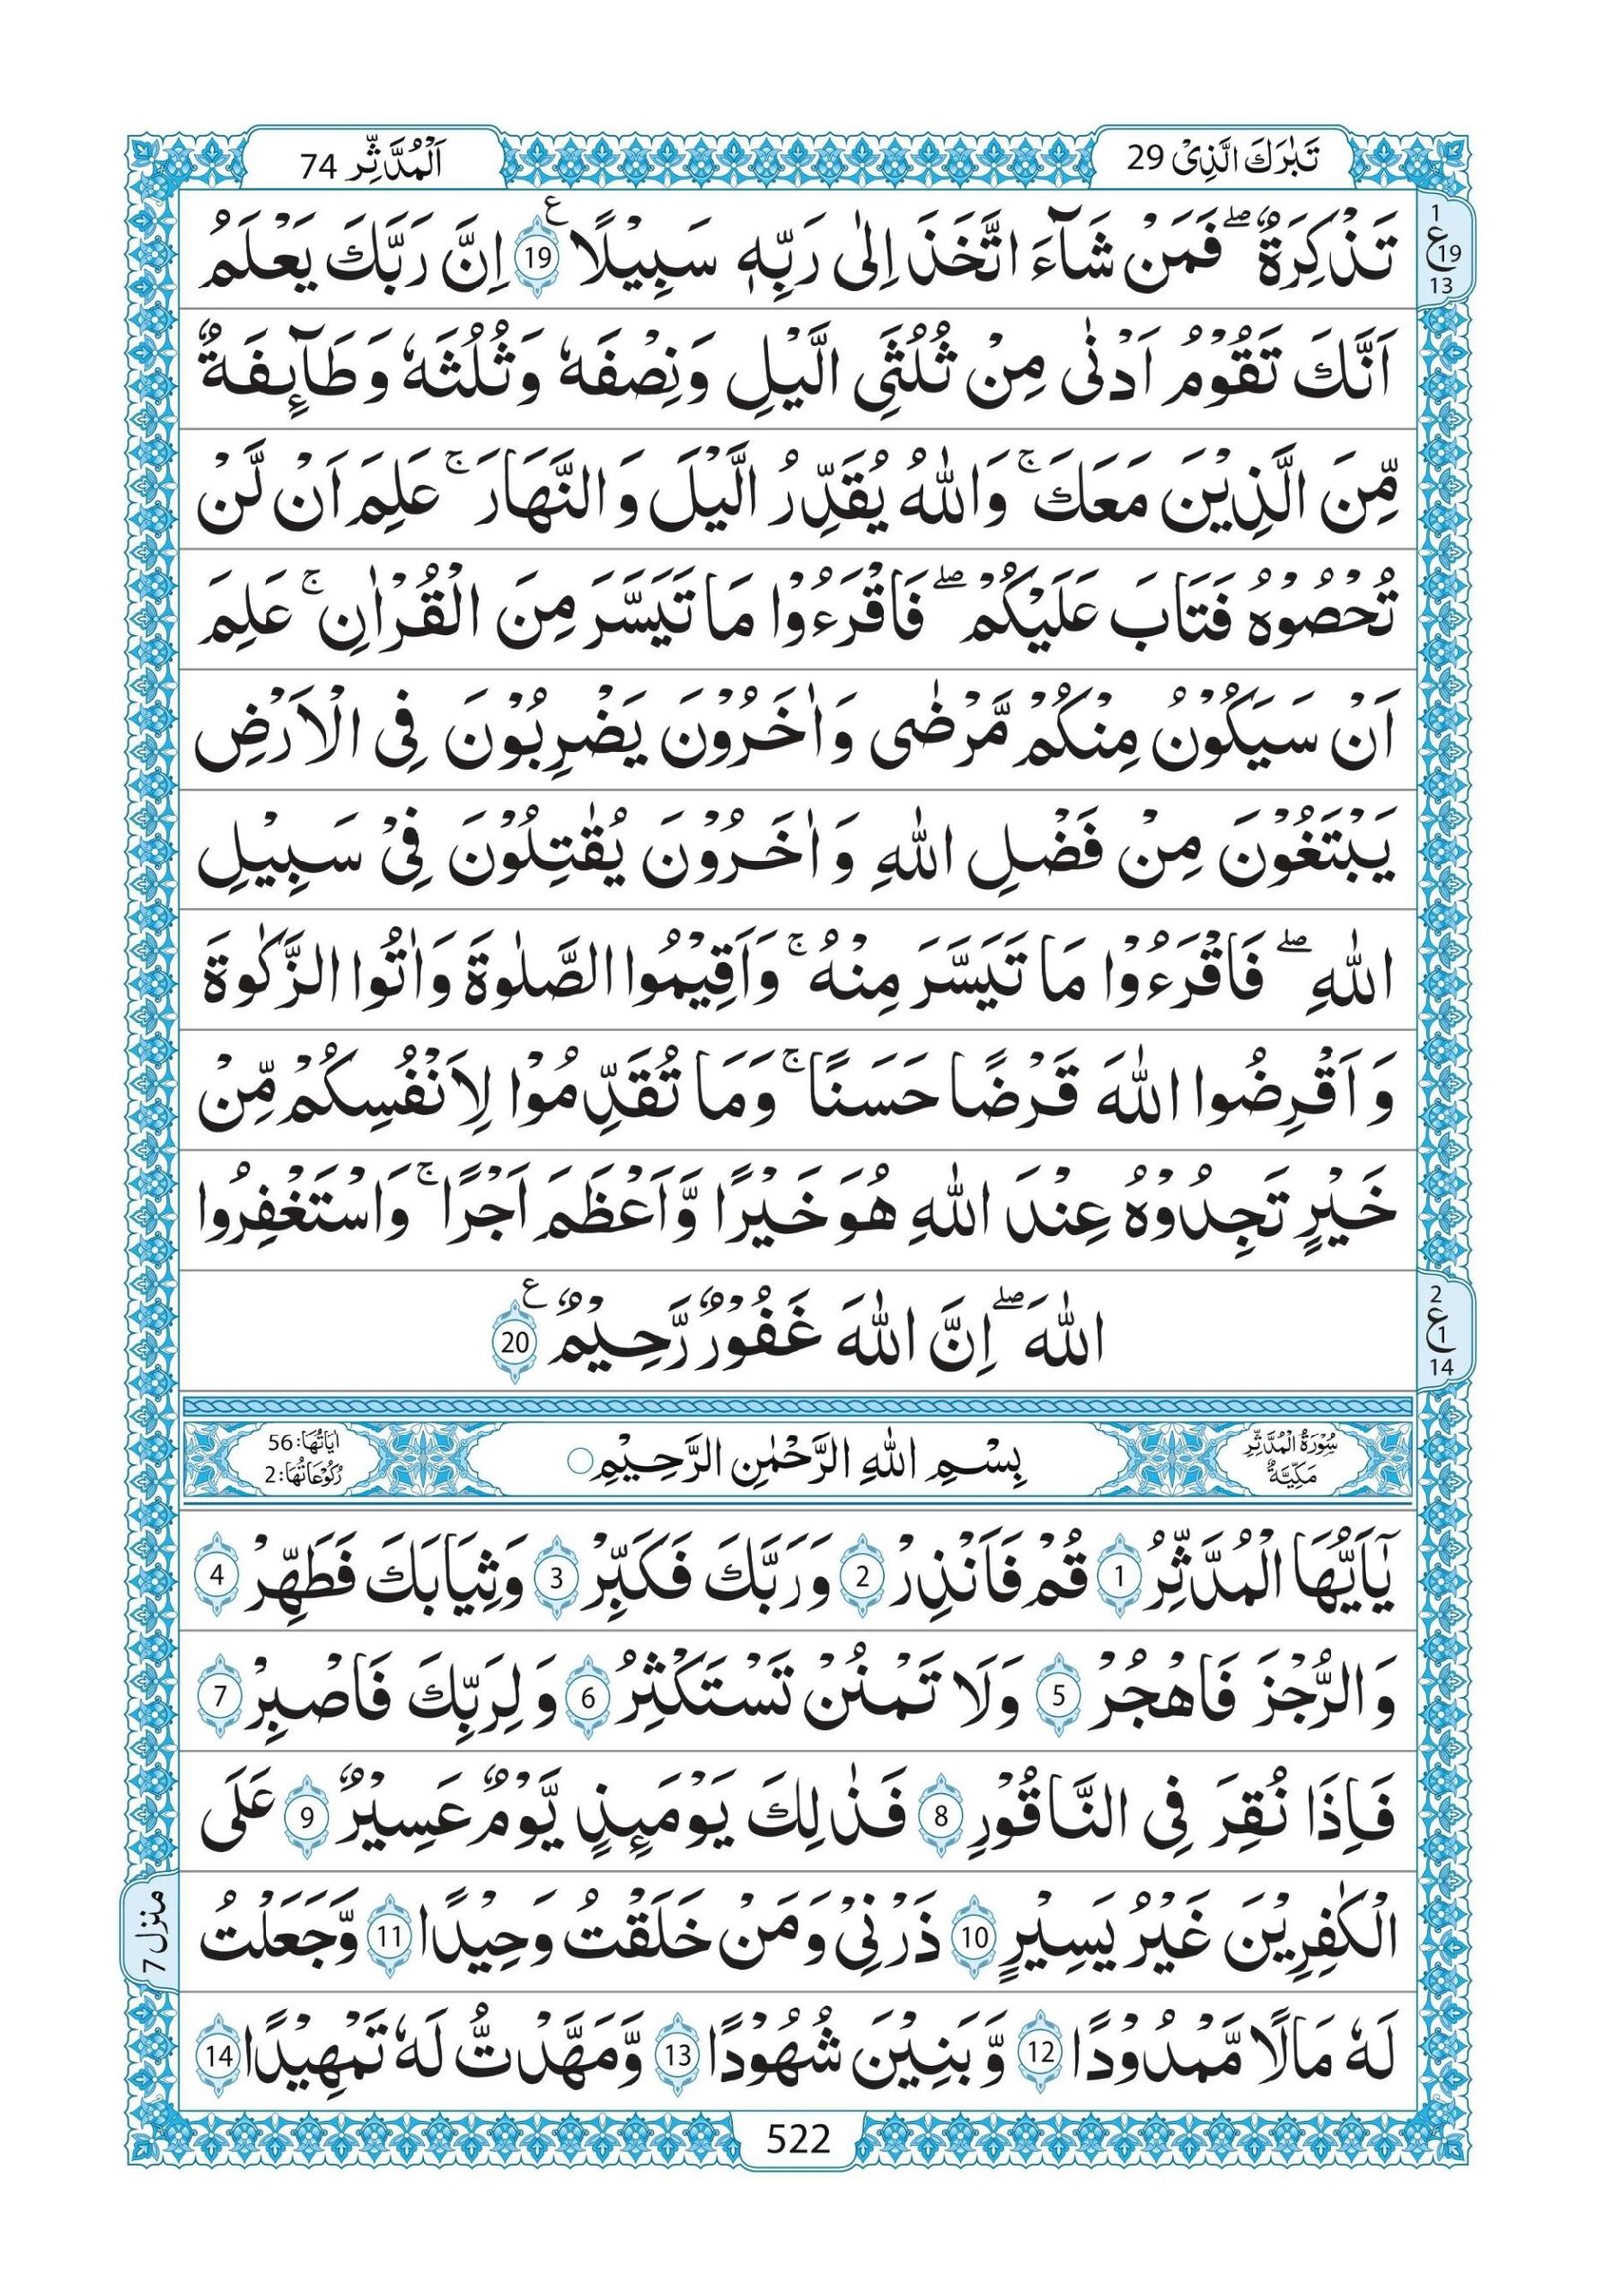 تَبٰرَكَ الَّذِىْ 29
اَلْمُدَّثِّر 74
تَذْكِرَةٌ ۖ فَمَنْ شَآءَ اتَّخَذَ اِلٰى رَبِّهٖ سَبِيْلًا ࣖ 19 اِنَّ رَبَّكَ يَعْلَمُ
اَنَّكَ تَقُوْمُ اَدْنٰى مِنْ ثُلُثَىِ الَّيْلِ وَنِصْفَهٗ وَثُلُثَهٗ وَطَآئِفَةٌ
مِّنَ الَّذِيْنَ مَعَكَ ۚ وَاللّٰهُ يُقَدِّرُ الَّيْلَ وَالنَّهَارَ ۚ عَلِمَ اَنْ لَّنْ
تُحْصُوْهُ فَتَابَ عَلَيْكُمْ ۖ فَاقْرَءُوْا مَا تَيَسَّرَ مِنَ الْقُرْاٰنِ ۚ عَلِمَ
اَنْ سَيَكُوْنُ مِنْكُمْ مَّرْضٰى وَاٰخَرُوْنَ يَضْرِبُوْنَ فِى الْاَرْضِ
يَبْتَغُوْنَ مِنْ فَضْلِ اللّٰهِ وَاٰخَرُوْنَ يُقٰتِلُوْنَ فِىْ سَبِيْلِ
اللّٰهِ ۖ فَاقْرَءُوْا مَا تَيَسَّرَ مِنْهُ ۚ وَاَقِيْمُوا الصَّلٰوةَ وَاٰتُوا الزَّكٰوةَ
وَاَقْرِضُوا اللّٰهَ قَرْضًا حَسَنًا ۚ وَمَا تُقَدِّمُوْا لِاَنْفُسِكُمْ مِّنْ
خَيْرٍ تَجِدُوْهُ عِنْدَ اللّٰهِ هُوَ خَيْرًا وَّاَعْظَمَ اَجْرًا ۚ وَاسْتَغْفِرُوا
اللّٰهَ ۖ اِنَّ اللّٰهَ غَفُوْرٌ رَّحِيْمٌ ࣖ 20
1
ع 19
13
2
ع 1
14
سُوْرَةُ الْمُدَّثِّرِ
مَكِّيَّةٌ
بِسْمِ اللّٰهِ الرَّحْمٰنِ الرَّحِيْمِ ○
اٰيَاتُهَا: 56
رُكُوْعَاتُهَا: 2
يٰٓاَيُّهَا الْمُدَّثِّرُ 1 قُمْ فَاَنْذِرْ 2 وَرَبَّكَ فَكَبِّرْ 3 وَثِيَابَكَ فَطَهِّرْ 4
وَالرُّجْزَ فَاهْجُرْ 5 وَلَا تَمْنُنْ تَسْتَكْثِرُ 6 وَلِرَبِّكَ فَاصْبِرْ 7
فَاِذَا نُقِرَ فِى النَّاقُوْرِ 8 فَذٰلِكَ يَوْمَئِذٍ يَّوْمٌ عَسِيْرٌ 9 عَلَى
الْكٰفِرِيْنَ غَيْرُ يَسِيْرٍ 10 ذَرْنِىْ وَمَنْ خَلَقْتُ وَحِيْدًا 11 وَّجَعَلْتُ
لَهٗ مَالًا مَّمْدُوْدًا 12 وَّبَنِيْنَ شُهُوْدًا 13 وَّمَهَّدْتُّ لَهٗ تَمْهِيْدًا 14
منزل 7
522